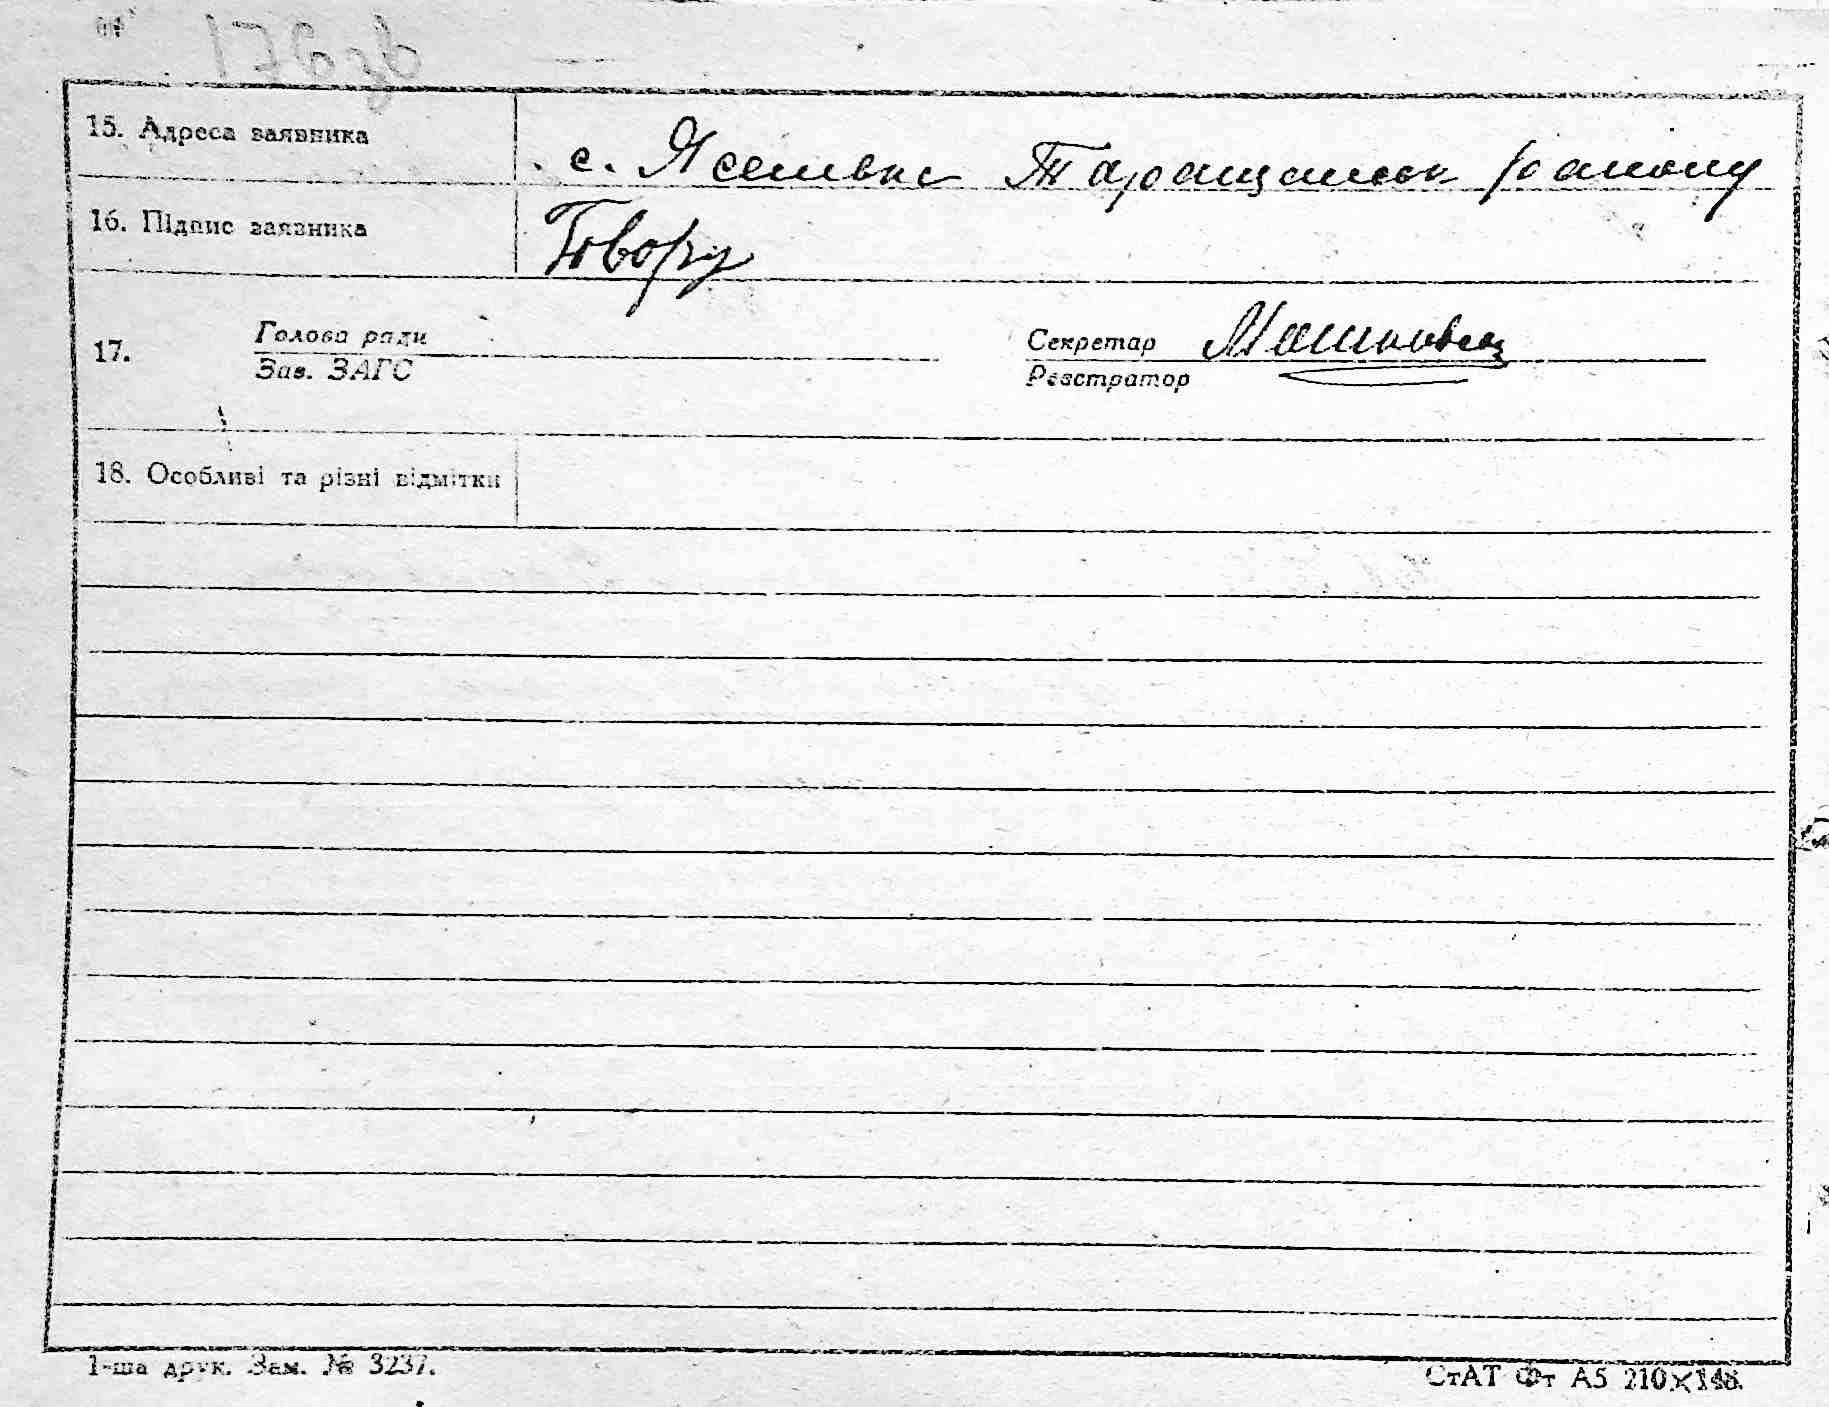 15. Адреса заявника с. Ясенівка Таращанськ району
16. Підпис заявника Говору
17. Голова ради Секретар
Зав. ЗАГС Реєстратор
18. Особливі та різні відмітки
1-ша друк. Зам. № 3237. СтАТ Фт А5 210×148.